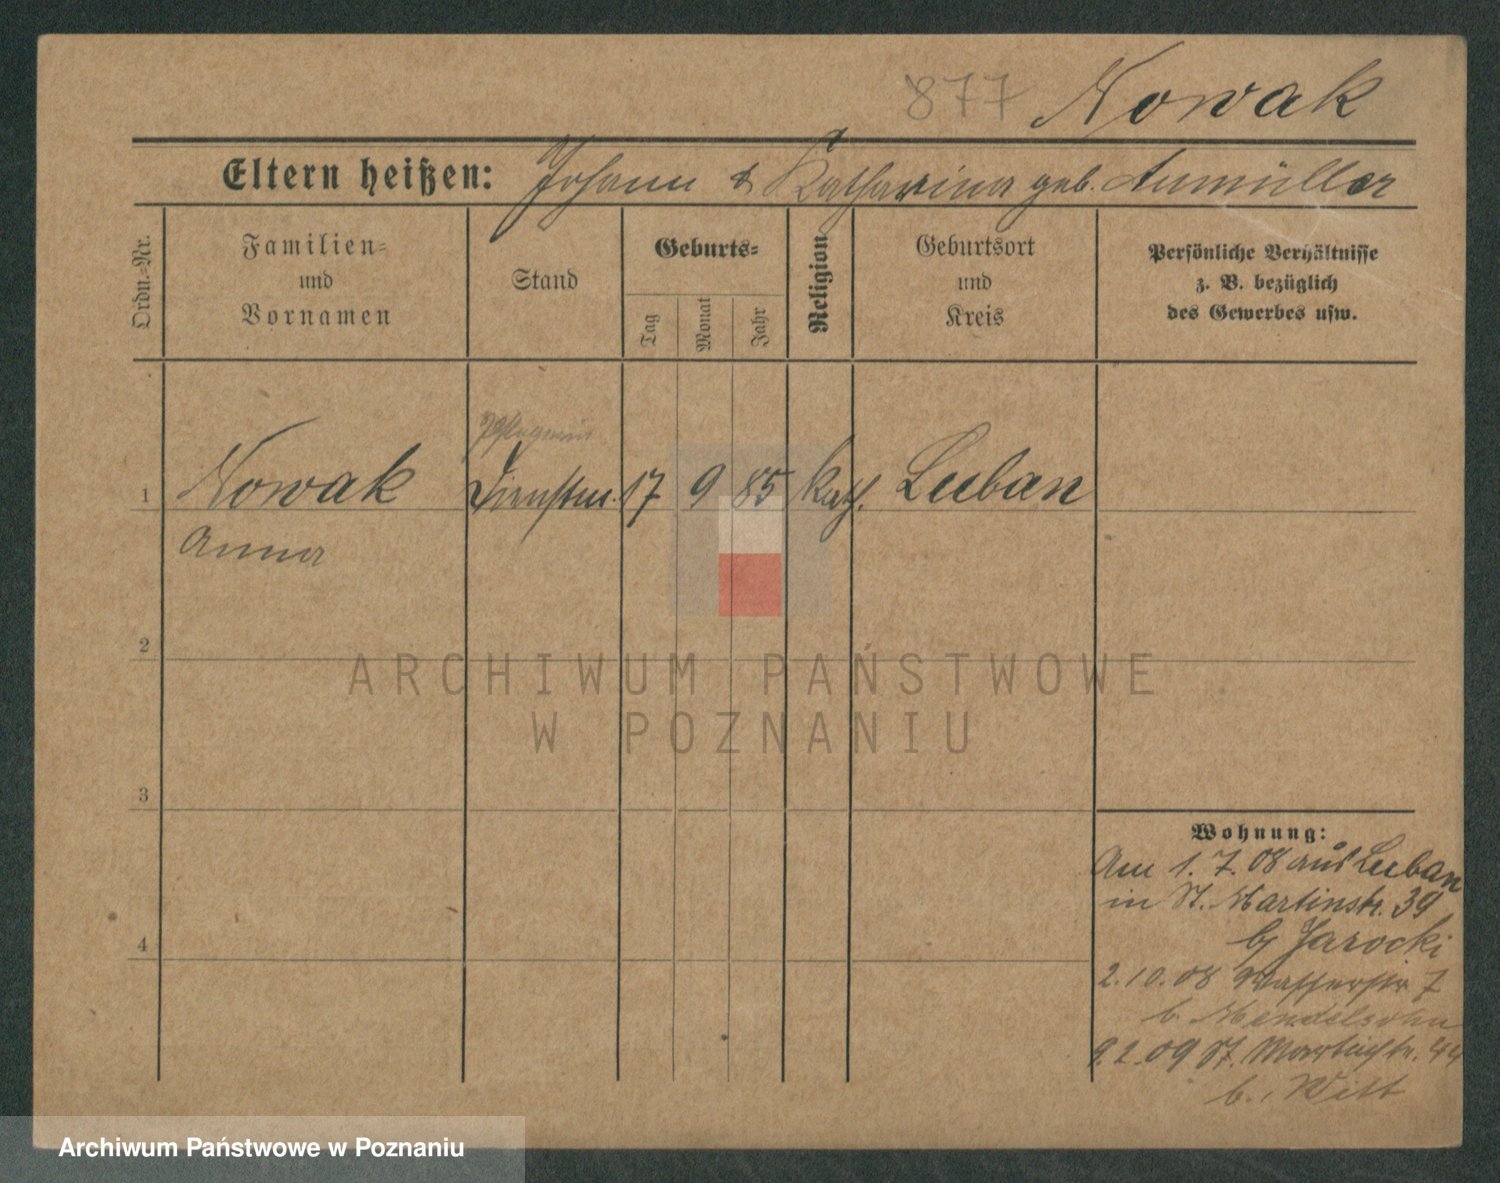 877 Nowak
Eltern heißen: Johann & Katharina geb. Aumüller
Ordn.=Nr.
Familien=
und
Vornamen
Stand
Geburts=
Tag
Monat
Jahr
Religion
Geburtsort
und
Kreis
Persönliche Verhältnisse
z. B. bezüglich
des Gewerbes usw.
1 Nowak Dienstm. 17 9 85 kath. Luban
Anna
2
3
4
Wohnung:
Am 1. 7. 08 aus Luban
in St. Martinstr. 39
b/ Jarocki
2. 10. 08 Wasserstr 7
b. Mendelsohn
9. 2. 09 St. Martinstr. 44
b. Witt
ARCHIWUM PAŃSTWOWE
W POZNANIU
Archiwum Państwowe w Poznaniu